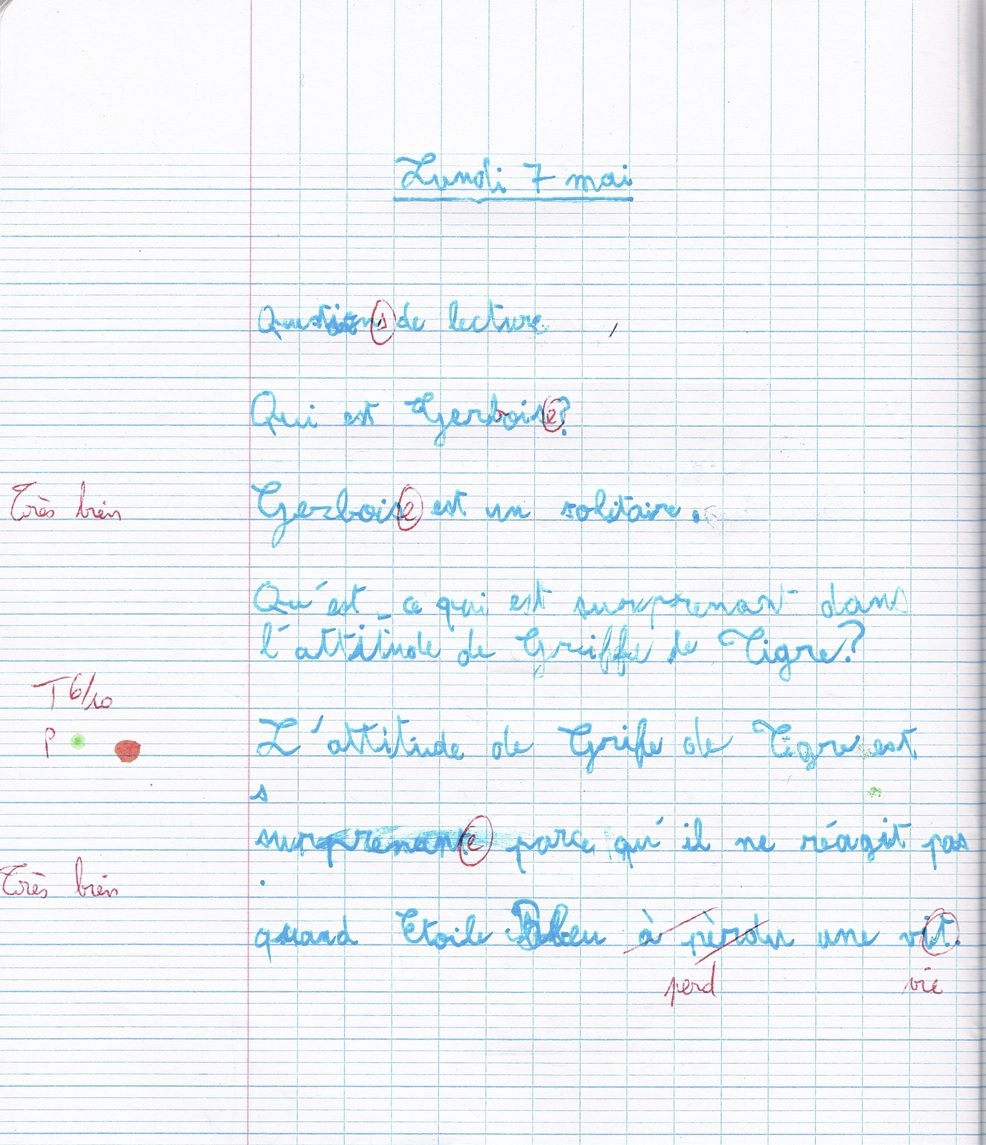 Lundi 7 mai
Questions de lecture
Qui est Gerboise?
Très bien
Gerboise est un solitaire.
Qu'est-ce qui est surprenant dans
l'attitude de Griffe de Tigre?
T 6/10
P
L'attitude de Grife de Tigre est
s
surprenante parce qu'il ne réagit pas
Très bien
quand Etoile Bleu à pèrdu une vit.
perd vie